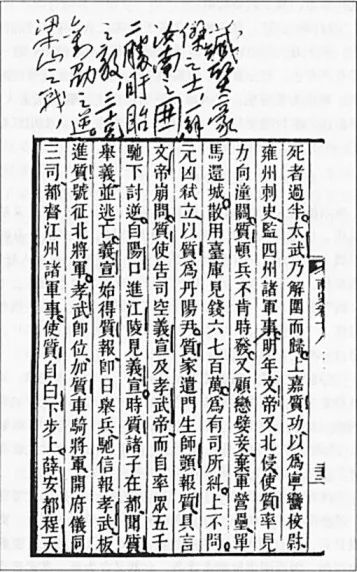 臧質豪
傑之士，解
汝南之圍
勝盱眙
之敵，克
劉劭逆。
梁山之戰
死者過半太武乃解圍而歸上嘉質功以爲寧蠻校尉
雍州刺史監四州諸軍事明年文帝又北侵使質率見
力向潼關質頓兵不肯時發又顧戀嬖妾棄軍營壘單
馬還城散用臺庫見錢六七百萬爲有司所糾上不問
元凶弑立以質爲丹陽尹質家遣門生師顗報質具言
文帝崩問質使告司空義宣及孝武帝而自率眾五千
馳下討逆自陽口進江陵見義宣時質諸子在都聞質
舉義並逃亡義宣始得質報即日舉兵馳信報孝武板
進質號征北將軍孝武即位加質車騎將軍開府儀同
三司都督江州諸軍事使質自白下步上薛安都程天